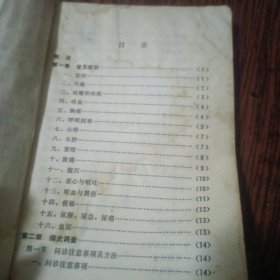 目录
绪论
第一章 常见症状 (1)
一、发热 (1)
二、头痛 (2)
三、咳嗽和咳痰 (3)
四、咯血 (4)
五、胸痛 (5)
六、呼吸困难 (6)
七、心悸 (7)
八、水肿 (7)
九、紫绀 (8)
十、腹痛 (9)
十一、腹泻 (10)
十二、恶心与呕吐 (10)
十三、呕血与黑便 (11)
十四、便秘 (12)
十五、尿频、尿急、尿痛 (13)
十六、血尿 (14)
第二章 病史调查 (14)
第一节 问诊注意事项及方法 (14)
一、问诊注意事项 (14)